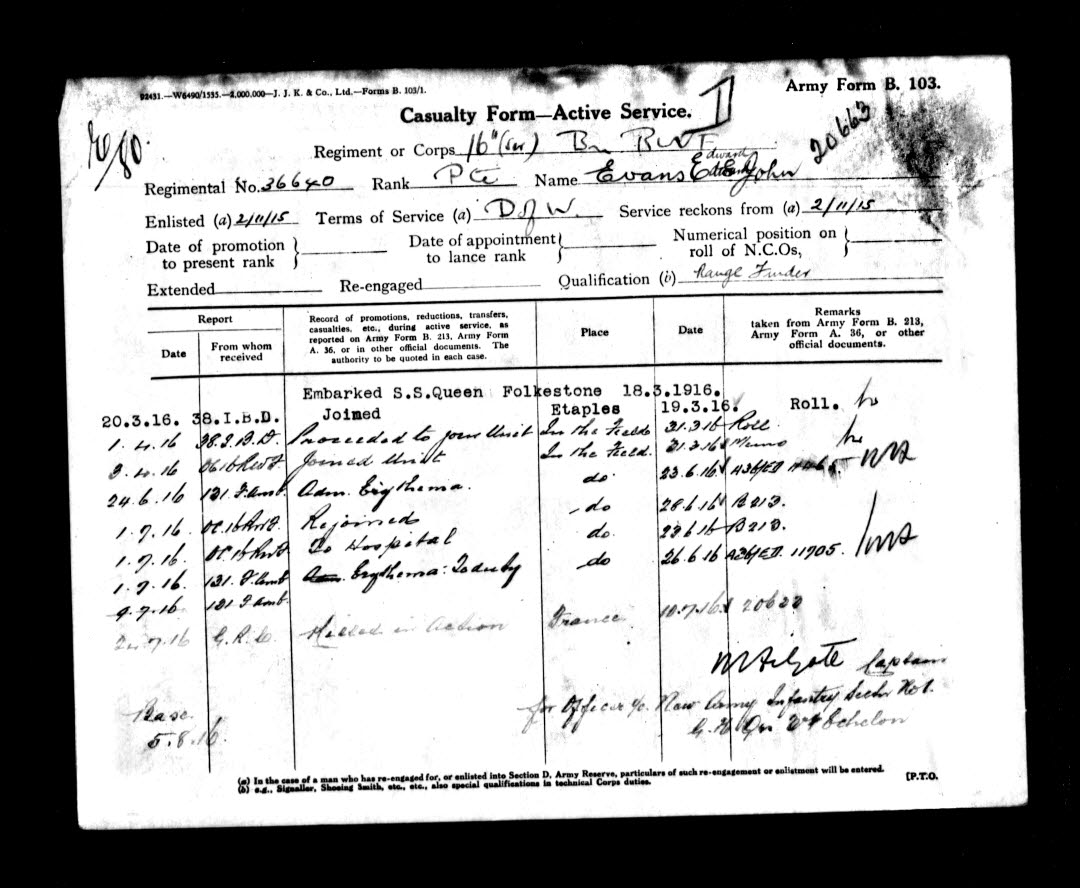 92431.—W6490/1535.—2,000,000—J. J. K. & Co., Ltd.—Forms B. 103/1.
Army Form B. 103.
Casualty Form—Active Service.
20663
Regiment or Corps 16th (Ser) Bn RWF
Regimental No. 36640 Rank Pte Name Evans Edward John
Enlisted (a) 2/11/15 Terms of Service (a) D of W. Service reckons from (a) 2/11/15
Date of promotion to present rank } Date of appointment to lance rank } Numerical position on roll of N.C.Os, }
Extended Re-engaged Qualification (b) Range Finder
Report
Date
From whom received
Record of promotions, reductions, transfers, casualties, etc., during active service, as reported on Army Form B. 213, Army Form A. 36, or in other official documents. The authority to be quoted in each case.
Place
Date
Remarks taken from Army Form B. 213, Army Form A. 36, or other official documents.
Embarked S.S.Queen Folkestone 18.3.1916.
20.3.16. 38.I.B.D. Joined Etaples 19.3.16. Roll.
1.4.16 38.I.B.D. Proceeded to join Unit In the Field 31.3.16 Roll
3.4.16 OC 16 RWF. Joined Unit In the Field. 31.3.16 Memo
24.6.16 131 F.amb. Adm. Erythema. do 23.6.16 A36/ED
1.7.16 OC.16 RWF. Rejoined do 28.6.16 B213.
1.7.16. OC 16 RWF. To Hospital do. B213.
1.7.16 131. F.amb Erythema: To duty do 26.6.16 A36/ED. 11905.
9.7.16 131 F.amb.
G.R.C. Killed in Action France 10.7.16
Captain
Base. for Officer i/c. New Army Infantry Section No 1.
5.8.16. G.H.Q. Echelon
(a) In the case of a man who has re-engaged for, or enlisted into Section D, Army Reserve, particulars of such re-engagement or enlistment will be entered.
(b) e.g., Signaller, Shoeing Smith, etc., etc., also special qualifications in technical Corps duties.
[P.T.O.